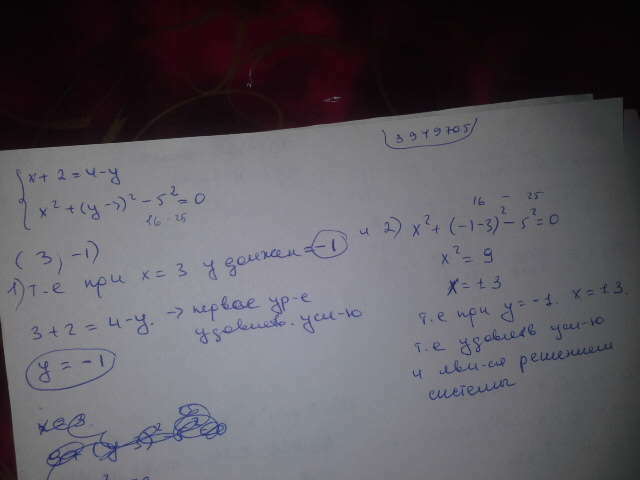 3979705
x + 2 = 4 - y
x² + (y - 3)² - 5² = 0
16 - 25
(3, -1)
1) т.е при x = 3 y должен = -1
3 + 2 = 4 - y. → первое ур-е
удовлетв. усл-ю
y = -1
и 2) x² + (-1-3)² - 5² = 0
16 - 25
x² = 9
x = ±3
т.е при y = -1. x = ±3.
т.е удовлетв усл-ю
и явл-ся решением
системы